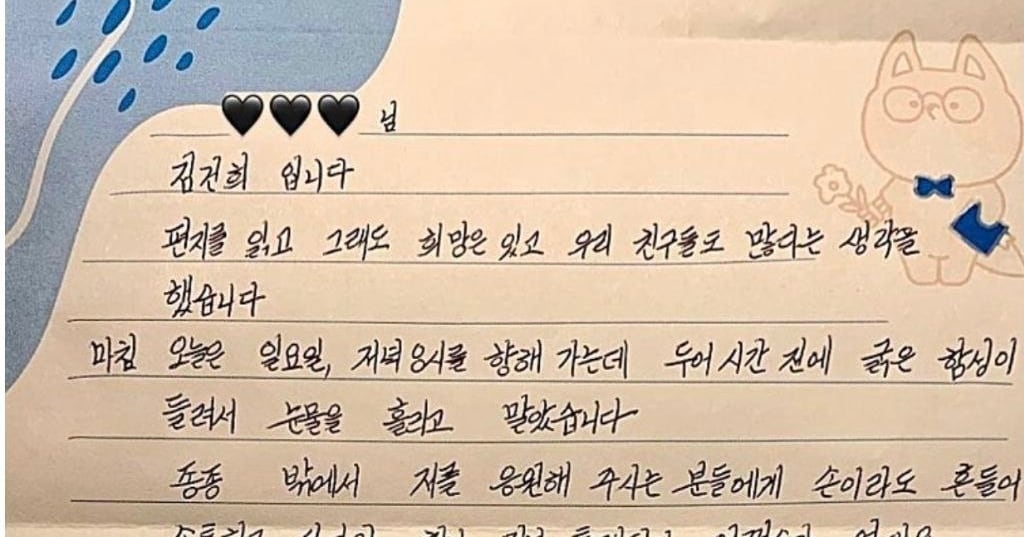 님
김건희 입니다
편지를 읽고 그래도 희망은 있고 우리 친구들도 많다는 생각을
했습니다
마침 오늘은 일요일, 저녁 8시를 향해 가는데 두어 시간 전에 굵은 함성이
들려서 눈물을 흘리고 말았습니다
종종 밖에서 저를 응원해 주시는 분들에게 손이라도 흔들어